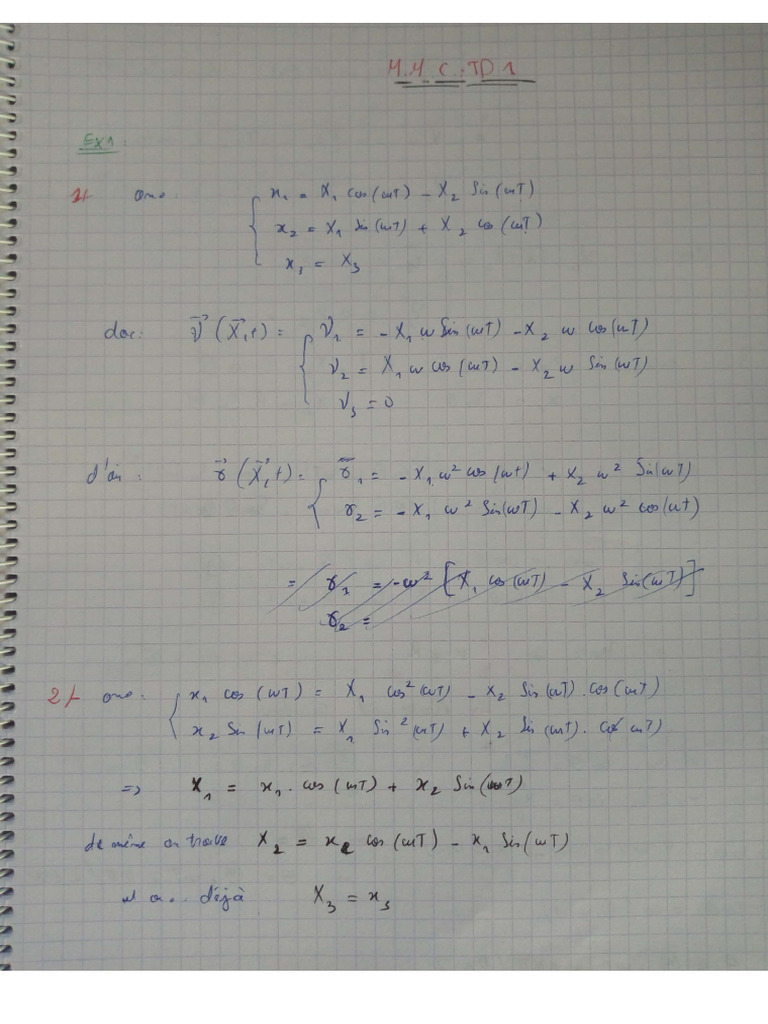 M.M.C.: TD1
Ex1:
1/ on a: x₁ = X₁ cos(ωT) - X₂ Sin(ωT)
x₂ = X₁ Sin(ωT) + X₂ cos(ωT)
x₃ = X₃
doc: V⃗(X⃗,t) = V₁ = - X₁ ω Sin(ωT) - X₂ ω cos(ωT)
V₂ = X₁ ω cos(ωT) - X₂ ω Sin(ωT)
V₃ = 0
d'où: γ⃗(X⃗,t) = γ₁ = - X₁ ω² cos(ωt) + X₂ ω² Sin(ωT)
γ₂ = - X₁ ω² Sin(ωT) - X₂ ω² cos(ωt)
= γ₃ = -ω² [X₁ cos(ωT) - X₂ Sin(ωT)]
γ₂ =
2/ on a: x₁ cos(ωT) = X₁ cos²(ωT) - X₂ Sin(ωT).cos(ωT)
x₂ Sin(ωT) = X₁ Sin²(ωT) + X₂ Sin(ωT). Cos ωT)
=> X₁ = x₁. cos(ωT) + x₂ Sin(ωT)
de même on trouve X₂ = x₂ cos(ωT) - x₁ Sin(ωT)
et on a déjà X₃ = x₃